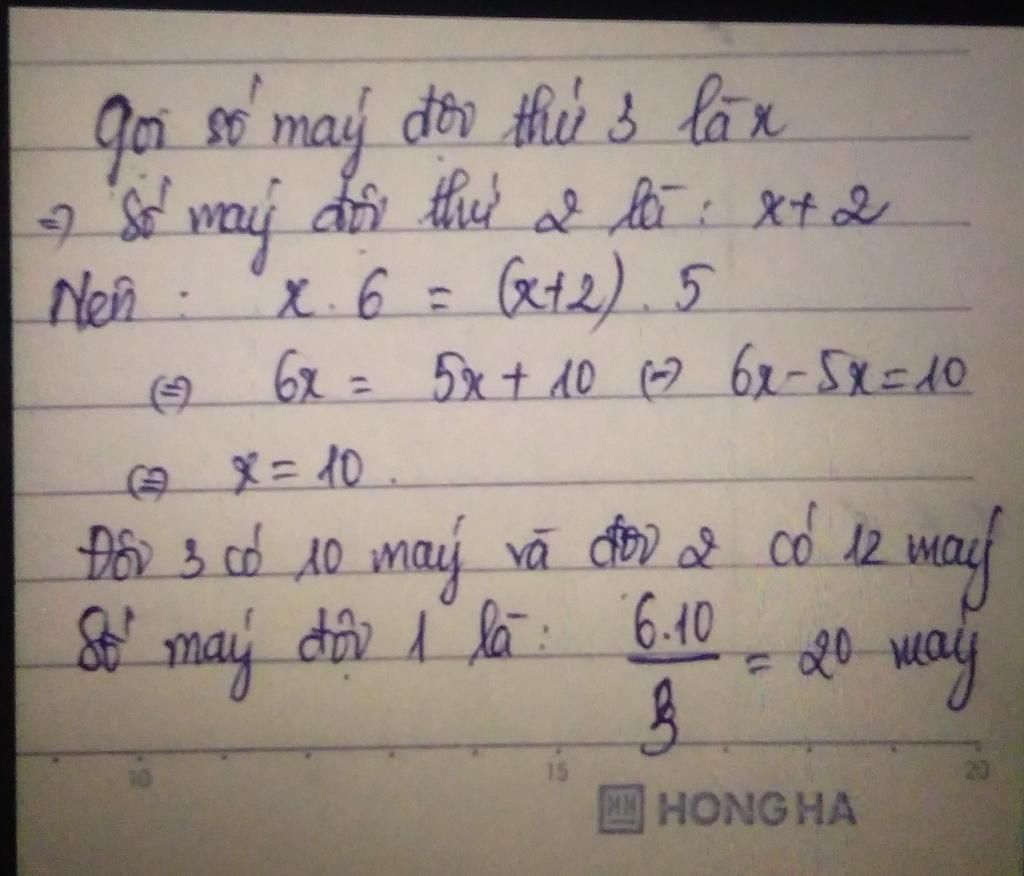 Gọi số máy đội thứ 3 là x
=> Số máy đội thứ 2 là : x + 2
Nên : x . 6 = (x+2) . 5
(=) 6x = 5x + 10 (=) 6x - 5x = 10
(=) x = 10 .
Đội 3 có 10 máy và đội 2 có 12 máy
Số máy đội 1 là : 6.10/3 = 20 máy
10 15 20
HH HONG HA